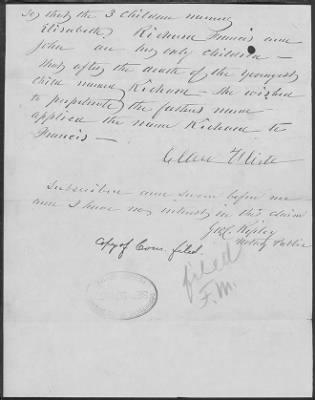 Says that the 3 children named
Elisabeth, Richard Francis and
John are her only children —
that after the death of the youngest
child named Richard — she wished
to perpetuate the fathers name —
applied the name Richard to
Francis —
Subscribed and sworn before me
and I have no interest in this claim
Geo. C. Ripley
Notary Public
Copy of Com. filed.
filed
F.M.